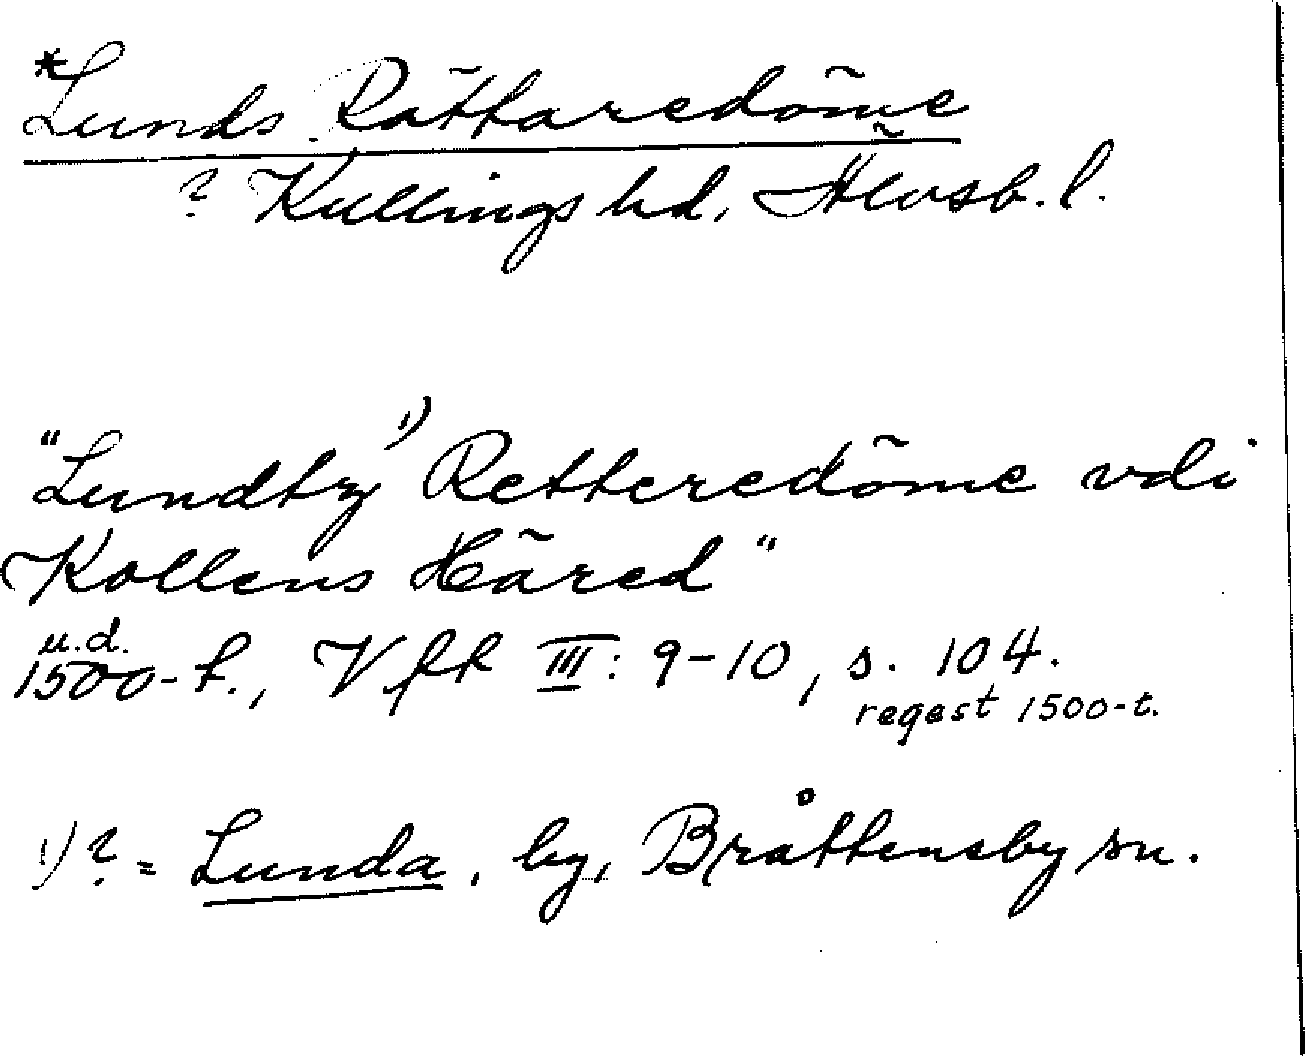 *Lunds Rättaredöme
? Kullings hd, Älvsb. l.
"Lundtz 1) Retteredöme vdi
Kollens Häred"
u.d.
1500-t., Vfft III: 9-10, s. 104.
regest 1500-t.
1) ? = Lunda, by, Bråttensby sn.